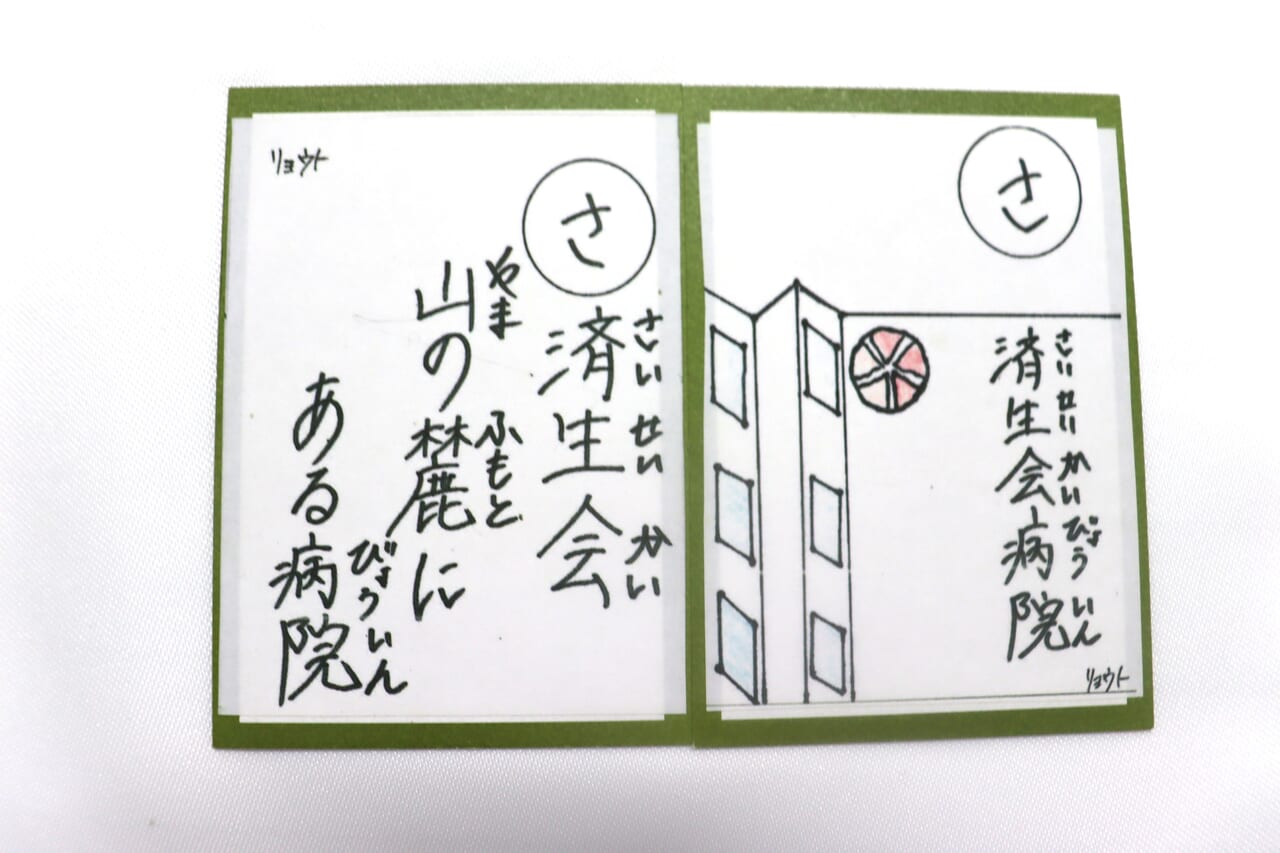 さ
さいせいかい
済生会
やま ふもと
山の麓に
びょういん
ある病院
リョウト
さ
さいせいかいびょういん
済生会病院
リョウト